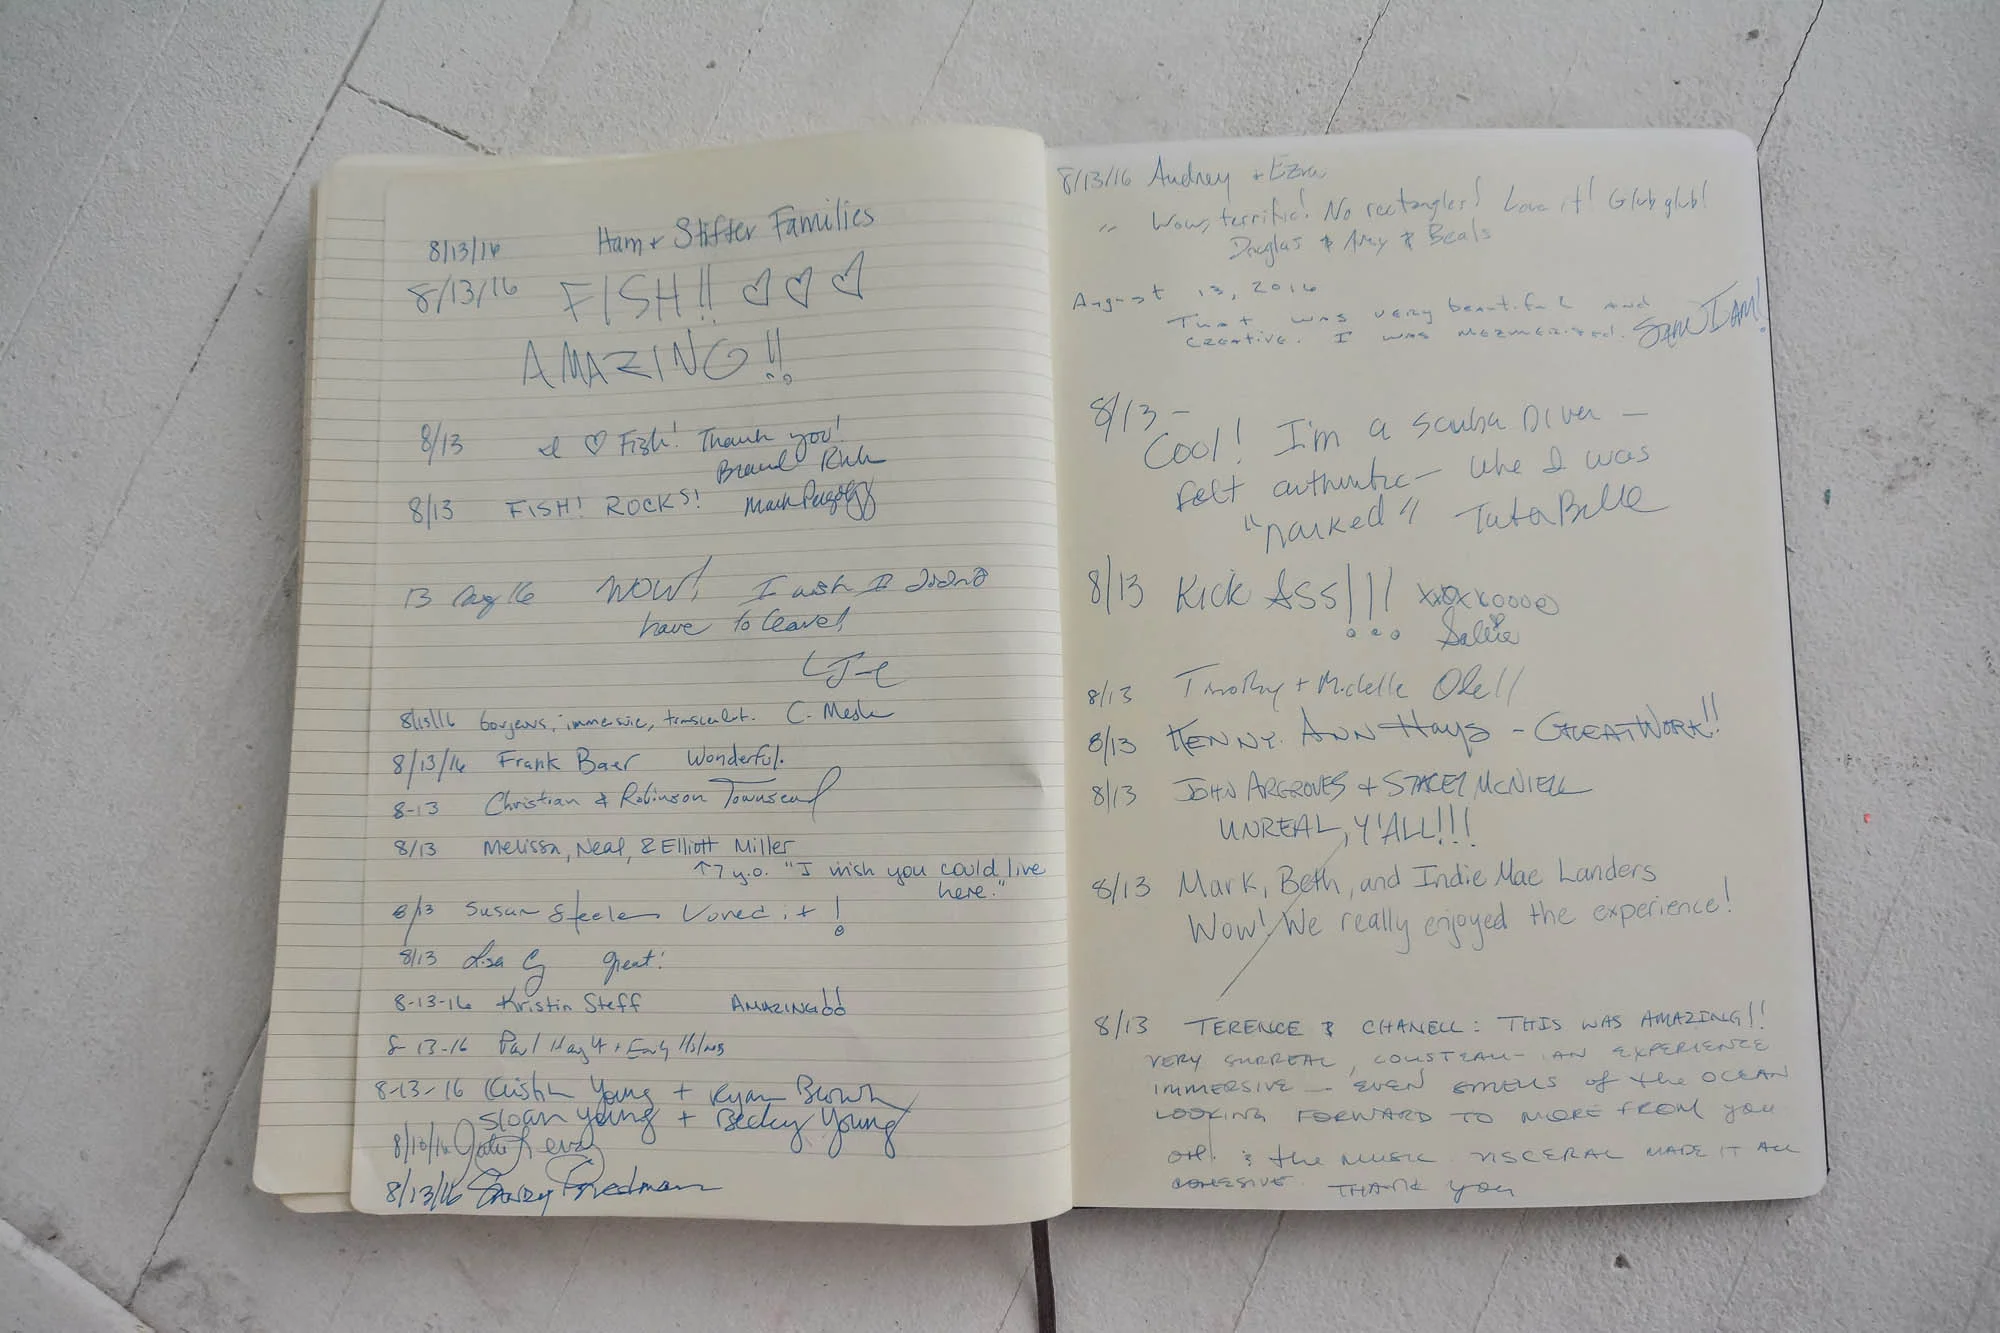 8/13/16 Ham + Stifter Families
8/13/16 FISH!! ♡ ♡ ♡
AMAZING!!
8/13 I ♡ Fish! Thank you!
8/13 FISH! ROCKS! Mark
13 Aug 16 WOW! I wish I didn't
have to leave!
8/15/16 Gorjeus, immersive, transcendent. C. Meslr
8/13/16 Frank Baer Wonderful.
8-13 Christian & Robinson Townsend
8/13 Melissa, Neal, & Elliott Miller
↑7 y.o. "I wish you could live
here."
8/13 Susan Steele Loved it!
8/13 Lisa G great!
8-13-16 Kristin Steff AMAZING!!
8-13-16 Paul Hayt + Emily Holmes
8-13-16 Kristin Young + Ryan Brown
Sloan young + Becky Young
8/13/16 Friedman
8/13/16 Audrey + Ezra
" Wow, terrific! No rectangles! Love it! Glub glub!
Douglas & Amy & Beals
August 13, 2016
That was very beautiful and
creative. I was mezmerized. SAM I AM!
8/13 -
Cool! I'm a scuba Diver -
Felt authentic - like I was
"narked" Tuta Belle
8/13 KICK ASS!!! xxoxxoooo
Sallie
8/13 Timothy + Michelle Odell
8/13 KENNY. ANN Hays - GREAT WORK!!
8/13 JOHN ARGROVES + STACEY MCNIELL
UNREAL, Y'ALL!!!
8/13 Mark, Beth, and Indie Mae Landers
Wow! We really enjoyed the experience!
8/13 TERENCE & CHANELL: THIS WAS AMAZING!!
VERY SURREAL, COUSTEAU - AN EXPERIENCE
IMMERSIVE - EVEN SMELLS of the OCEAN
LOOKING FORWARD TO MORE FROM YOU
OH! & the MUSIC VISCERAL MADE IT ALL
COHESIVE. THANK YOU